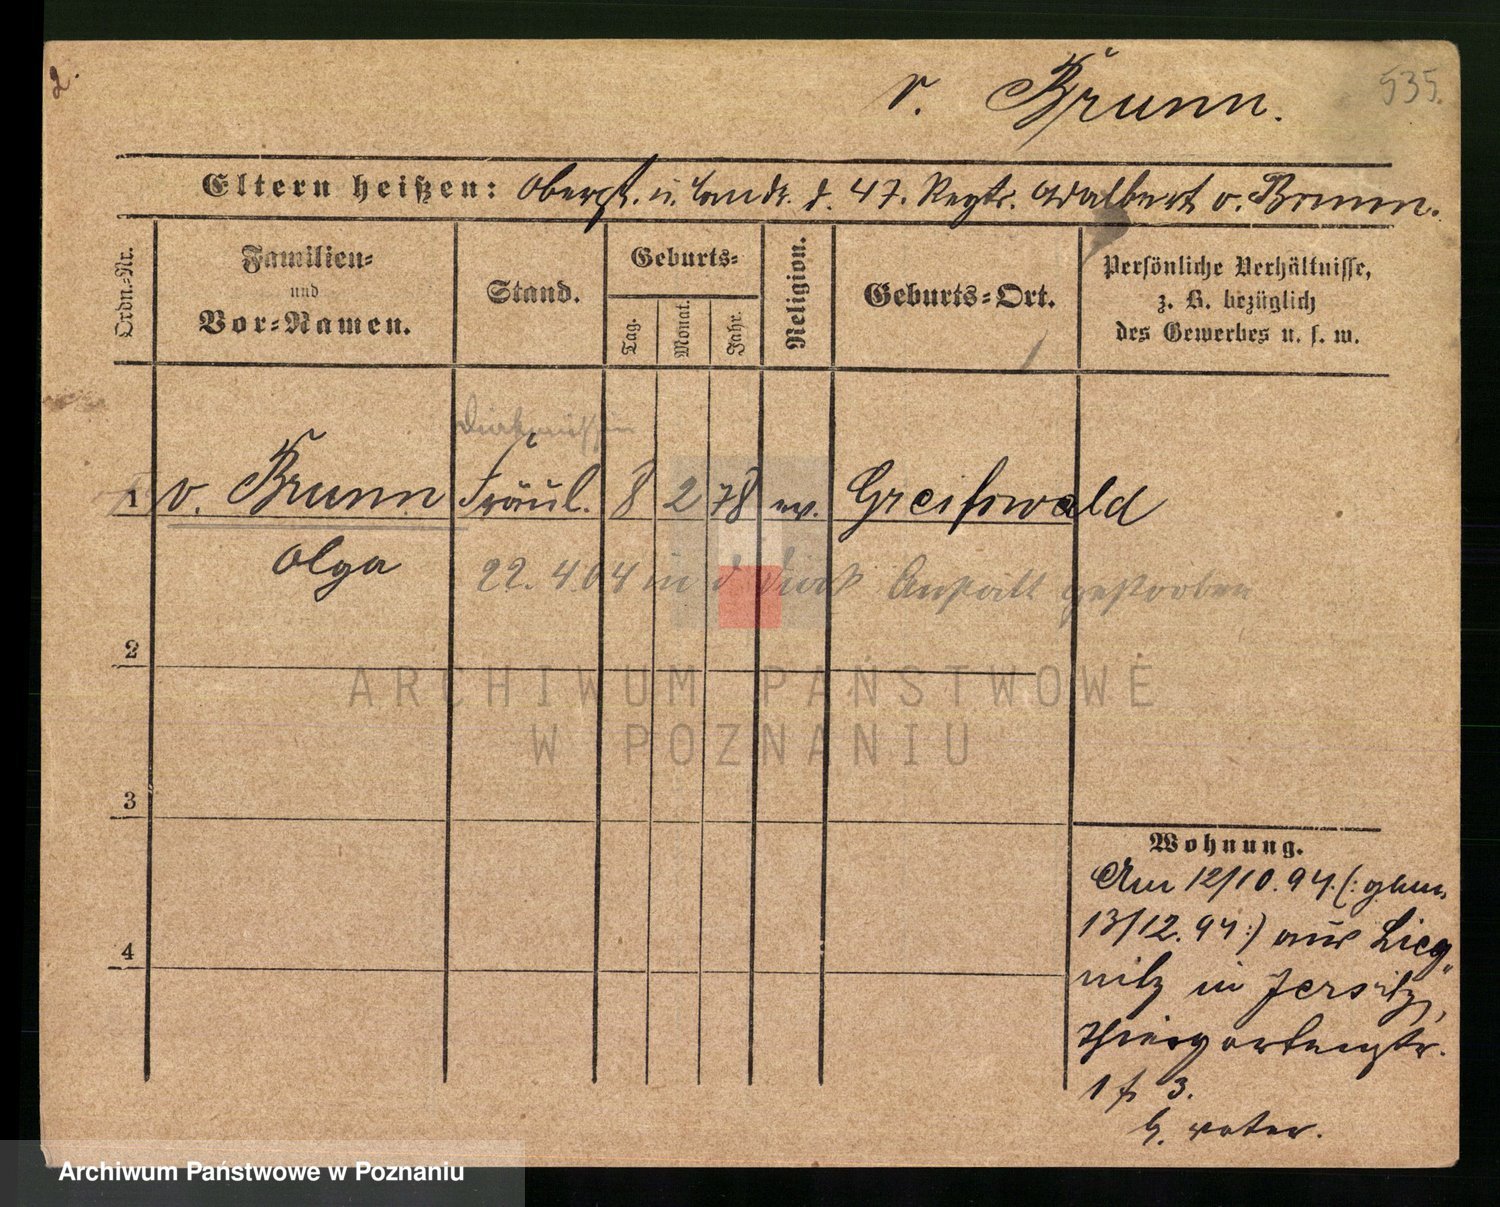 2.
v. Brunn.
535.
Eltern heißen: Oberst. u. Comdr. d. 47. Regts. Adalbert v. Brunn.
Ordn.-Nr.
Familien-
und
Vor-Namen.
Stand.
Geburts-
Tag.
Monat.
Jahr.
Religion.
Geburts-Ort.
Persönliche Verhältnisse,
z. B. bezüglich
des Gewerbes u. s. w.
Diakonissin
1 v. Brunn Fräul. 8 2 78 ev. Greifswald
Olga
22.4.04 in d. Diak Anstalt gestorben
2
3
4
Wohnung.
Am 12/10.94.(: gem.
13/12.94:) aus Lieg-
nitz in Jersitz,
Thiergartenstr.
1 b. Vater.
ARCHIWUM PAŃSTWOWE
W POZNANIU
Archiwum Państwowe w Poznaniu